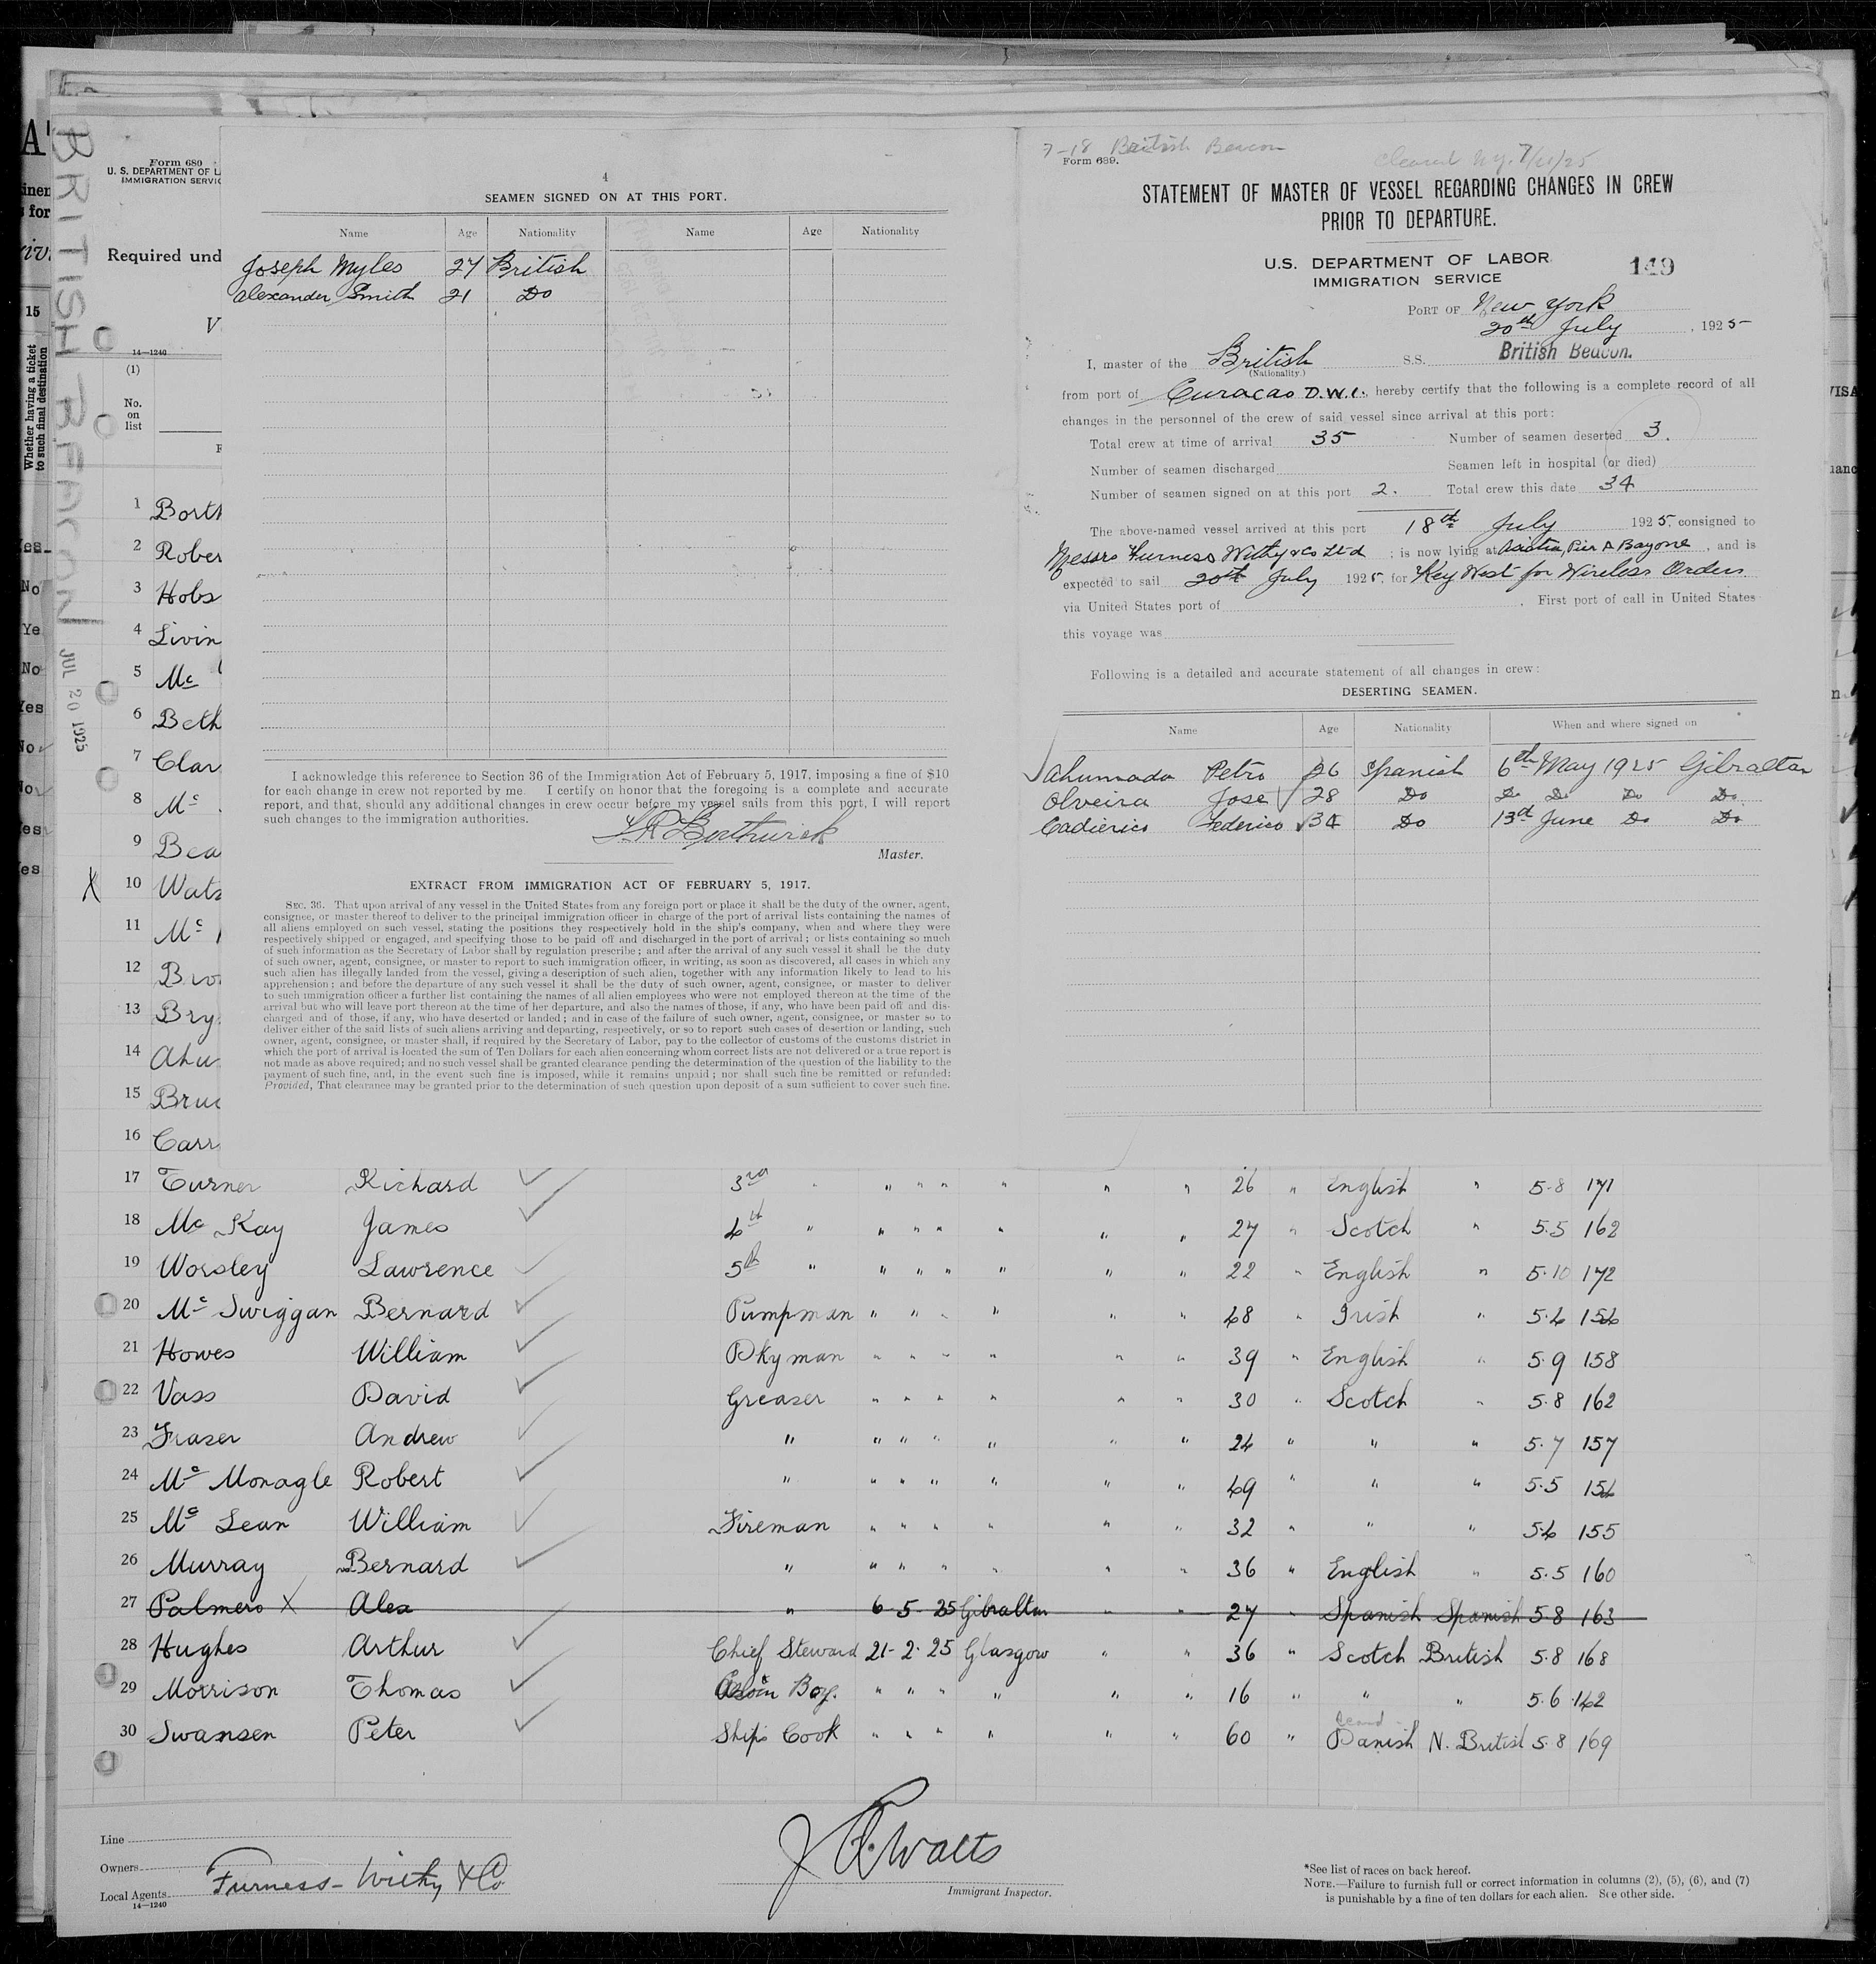 Form 680
U. S. DEPARTMENT OF L
IMMIGRATION SERVIC
Required und
V
14—1240
(1)
No.
on
list
BRITISH BEACON
JUL 20 1925
15
Whether having a ticket
to such final destination
4
SEAMEN SIGNED ON AT THIS PORT.
Name Age Nationality Name Age Nationality
Joseph Myles 27 British
Alexander Smith 21 Do
I acknowledge this reference to Section 36 of the Immigration Act of February 5, 1917, imposing a fine of $10
for each change in crew not reported by me. I certify on honor that the foregoing is a complete and accurate
report, and that, should any additional changes in crew occur before my vessel sails from this port, I will report
such changes to the immigration authorities.
Borthwick
Master.
EXTRACT FROM IMMIGRATION ACT OF FEBRUARY 5, 1917.
SEC. 36. That upon arrival of any vessel in the United States from any foreign port or place it shall be the duty of the owner, agent,
consignee, or master thereof to deliver to the principal immigration officer in charge of the port of arrival lists containing the names of
all aliens employed on such vessel, stating the positions they respectively hold in the ship's company, when and where they were
respectively shipped or engaged, and specifying those to be paid off and discharged in the port of arrival; or lists containing so much
of such information as the Secretary of Labor shall by regulation prescribe; and after the arrival of any such vessel it shall be the duty
of such owner, agent, consignee, or master to report to such immigration officer, in writing, as soon as discovered, all cases in which any
such alien has illegally landed from the vessel, giving a description of such alien, together with any information likely to lead to his
apprehension; and before the departure of any such vessel it shall be the duty of such owner, agent, consignee, or master to deliver
to such immigration officer a further list containing the names of all alien employees who were not employed thereon at the time of the
arrival but who will leave port thereon at the time of her departure, and also the names of those, if any, who have been paid off and dis-
charged and of those, if any, who have deserted or landed; and in case of the failure of such owner, agent, consignee, or master so to
deliver either of the said lists of such aliens arriving and departing, respectively, or so to report such cases of desertion or landing, such
owner, agent, consignee, or master shall, if required by the Secretary of Labor, pay to the collector of customs of the customs district in
which the port of arrival is located the sum of Ten Dollars for each alien concerning whom correct lists are not delivered or a true report is
not made as above required; and no such vessel shall be granted clearance pending the determination of the question of the liability to the
payment of such fine, and, in the event such fine is imposed, while it remains unpaid; nor shall such fine be remitted or refunded:
Provided, That clearance may be granted prior to the determination of such question upon deposit of a sum sufficient to cover such fine.
7-18 British Beacon
Form 689.
Cleared N.Y.
STATEMENT OF MASTER OF VESSEL REGARDING CHANGES IN CREW
PRIOR TO DEPARTURE.
U.S. DEPARTMENT OF LABOR
IMMIGRATION SERVICE
149
PORT OF New York
20th July, 1925
I, master of the British S.S. British Beacon.
(Nationality.)
from port of Curacao D.W.I., hereby certify that the following is a complete record of all
changes in the personnel of the crew of said vessel since arrival at this port:
Total crew at time of arrival 35 Number of seamen deserted 3.
Number of seamen discharged Seamen left in hospital (or died)
Number of seamen signed on at this port 2. Total crew this date 34
The above-named vessel arrived at this port 18th July 1925, consigned to
Messrs Furness Withy & Co Ltd; is now lying at Pier A Bayone, and is
expected to sail 20th July 1925, for Key West for Wireless Orders
via United States port of . First port of call in United States
this voyage was
Following is a detailed and accurate statement of all changes in crew:
DESERTING SEAMEN.
Name Age Nationality When and where signed on
Ahumada Petro 26 Spanish 6th May 1925 Gibraltar
Olveira Jose 28 Do Do Do Do Do
Cadierico Federico 34 Do 13d June Do Do
1 Borth
2 Rober
3 Hobs
4 Livin
5 Mc
6 Beth
7 Clar
8 Mc
9 Bea
X 10 Wats
11 Mc
12 Bro
13 Bry
14 Ahu
15 Bruc
16 Carr
17 Turner Richard 3rd " " " " " " " 26 " English " 5.8 171
18 Mc Kay James 4th " " " " " " " 27 " Scotch " 5.5 162
19 Worsley Lawrence 5th " " " " " " " 22 " English " 5.10 172
20 Mc Swiggan Bernard Pumpman " " " " " " 48 " Irish " 5.4 154
21 Howes William Dkyman " " " " " " 39 " English " 5.9 158
22 Vass David Greaser " " " " " " 30 " Scotch " 5.8 162
23 Fraser Andrew " " " " " " " 24 " " " 5.7 157
24 Mc Monagle Robert " " " " " " " 49 " " " 5.5 154
25 Mc Lean William Fireman " " " " " " 32 " " " 5.4 155
26 Murray Bernard " " " " " " " 36 " English " 5.5 160
27 Palmero X Alex " 6-5-25 Gibraltar " " 27 " Spanish Spanish 5.8 163
28 Hughes Arthur Chief Steward 21-2-25 Glasgow " " 36 " Scotch British 5.8 168
29 Morrison Thomas Boy. " " " " " " 16 " " " 5.6 142
30 Swansen Peter Ships Cook " " " " " " 60 " Danish N. British 5.8 169
Line
Owners
Local Agents Furness-Withy & Co
14—1240
J Watts
Immigrant Inspector.
*See list of races on back hereof.
NOTE.—Failure to furnish full or correct information in columns (2), (5), (6), and (7)
is punishable by a fine of ten dollars for each alien. See other side.